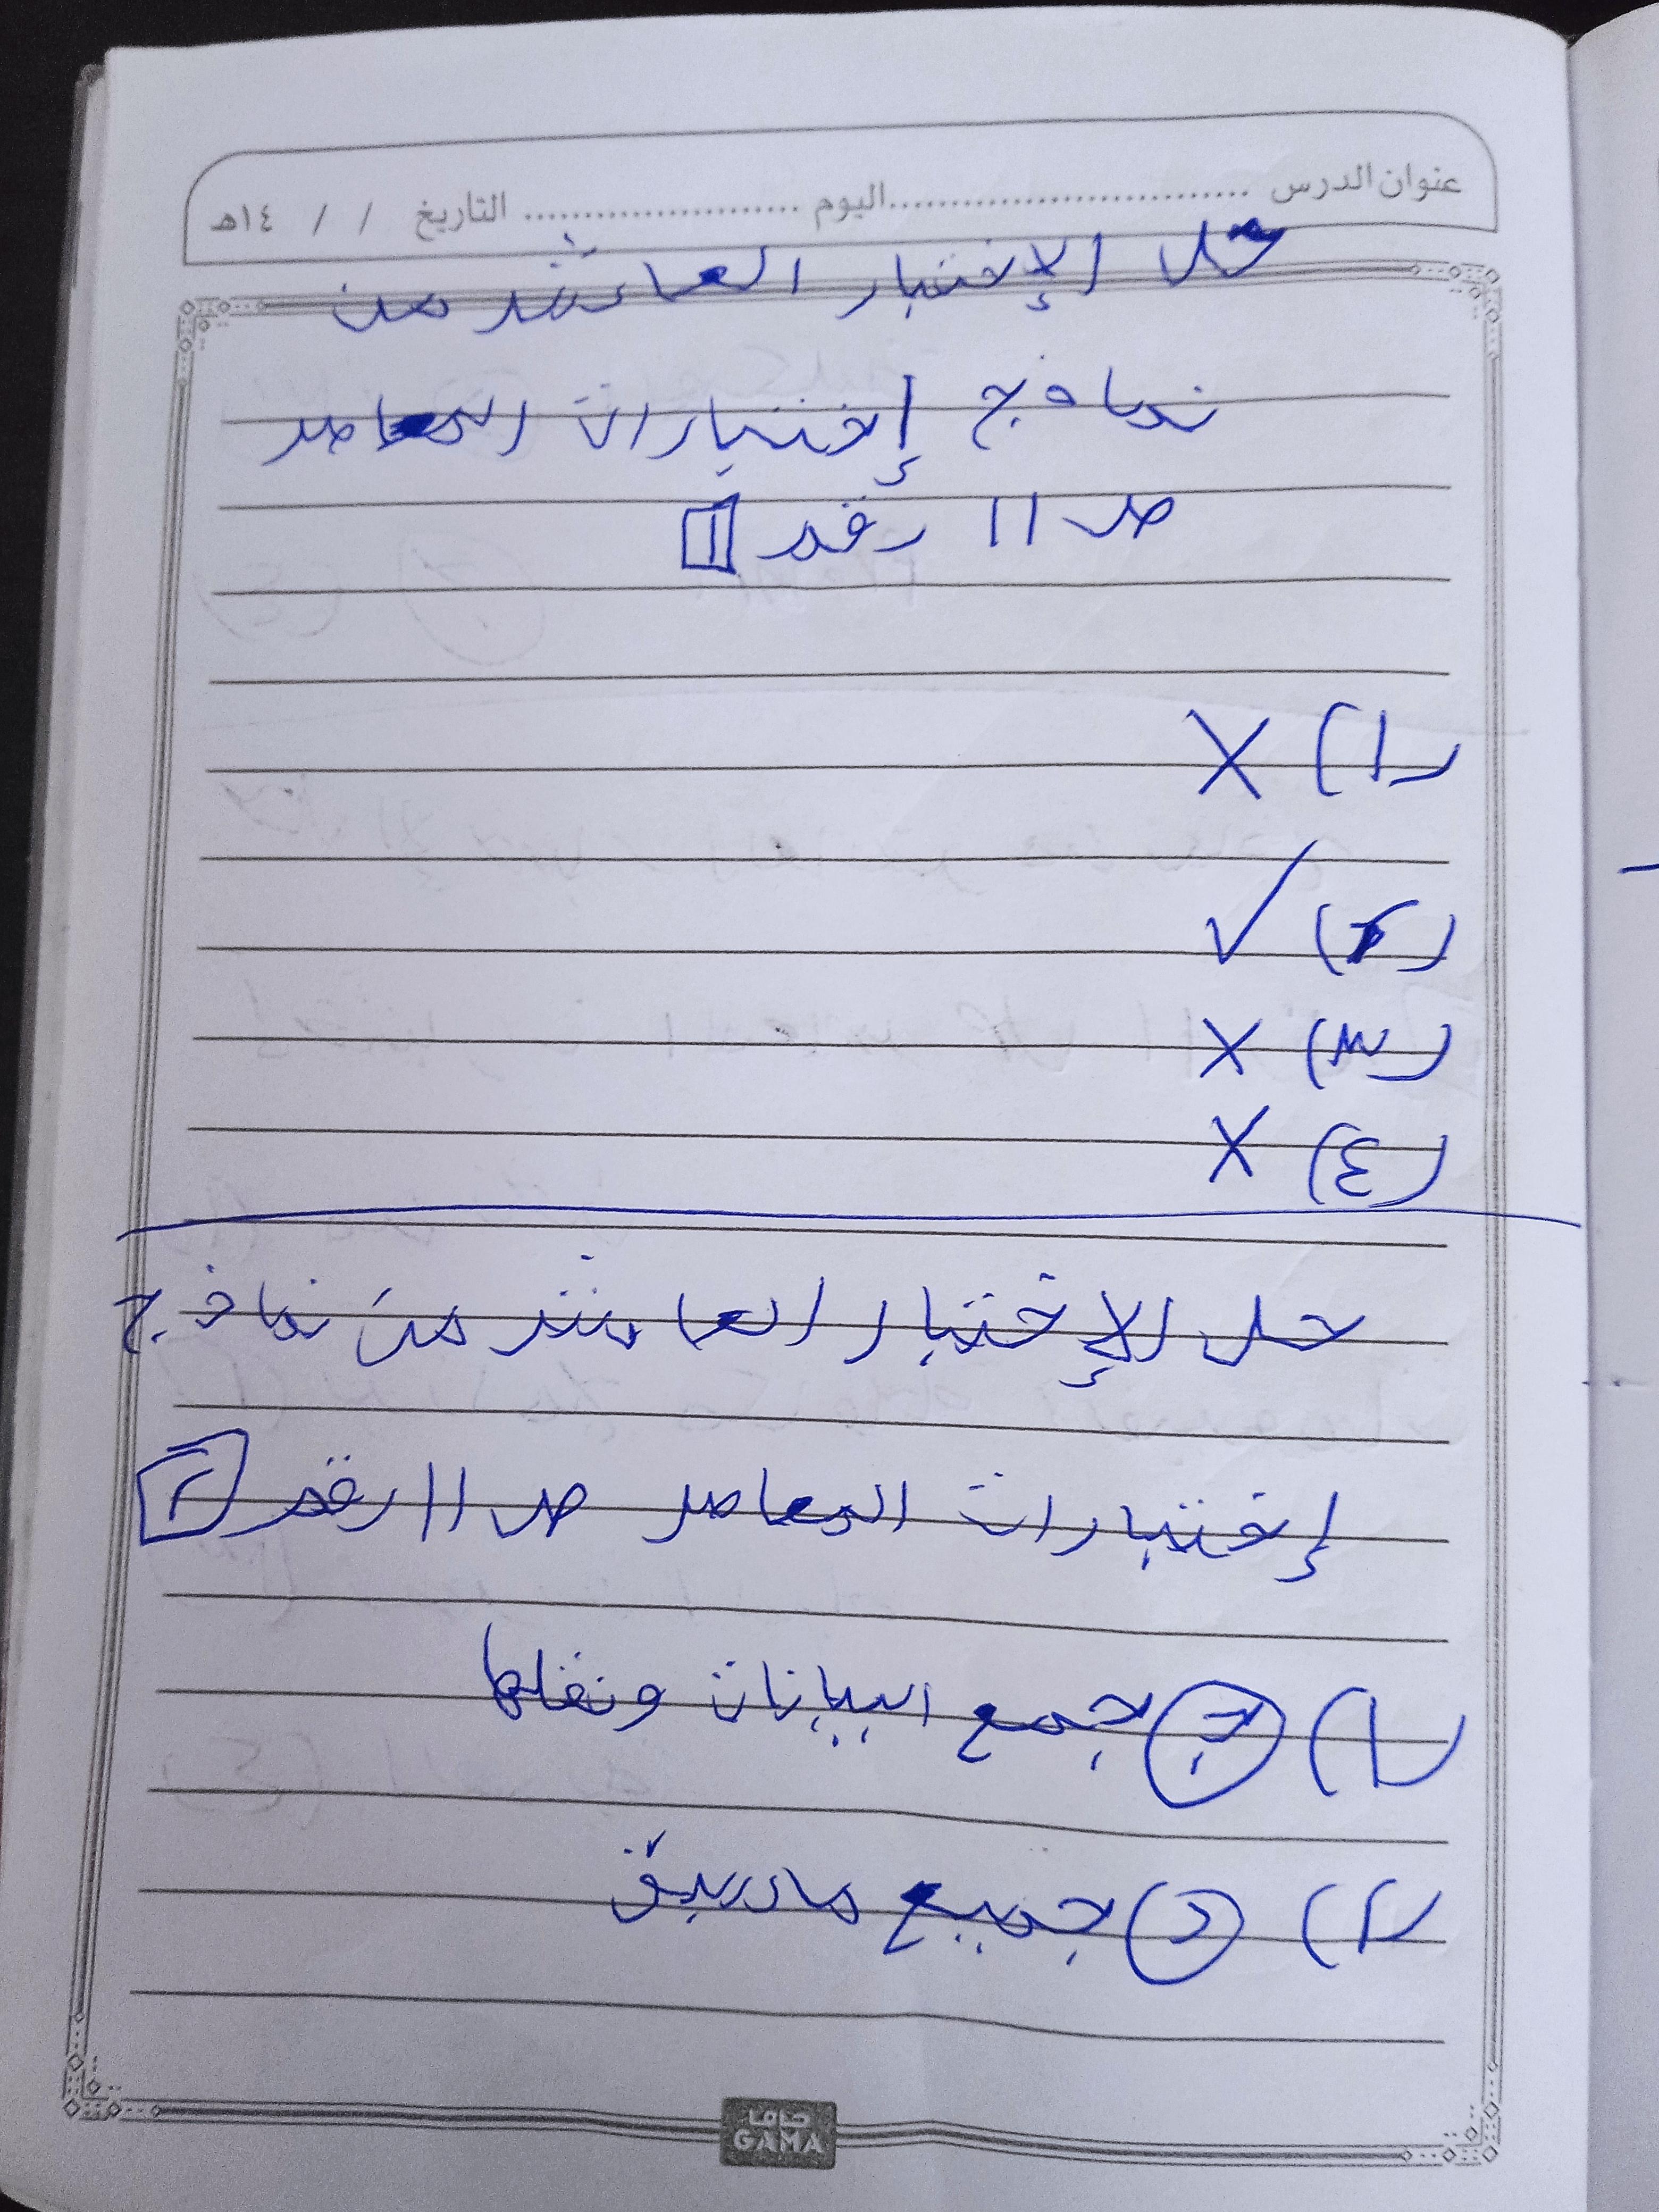 عنوان الدرس ............................ اليوم ........................ التاريخ / / ١٤هـ
حل الإختبار العاشر من
نماذج إختبارات المعاصر
صـ ١١ رقم ١
(١) X
(٢) ✓
(٣) X
(٤) X
حل الإختبار العاشر من نماذج
إختبارات المعاصر صـ ١١ رقم ٢
(١) ج جمع البيانات ونقلها
(٢) د جميع ماسبق
جاما
GAMA